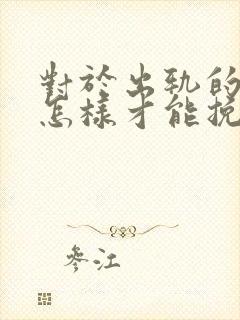 對於出軌的
怎樣才能挽
參江